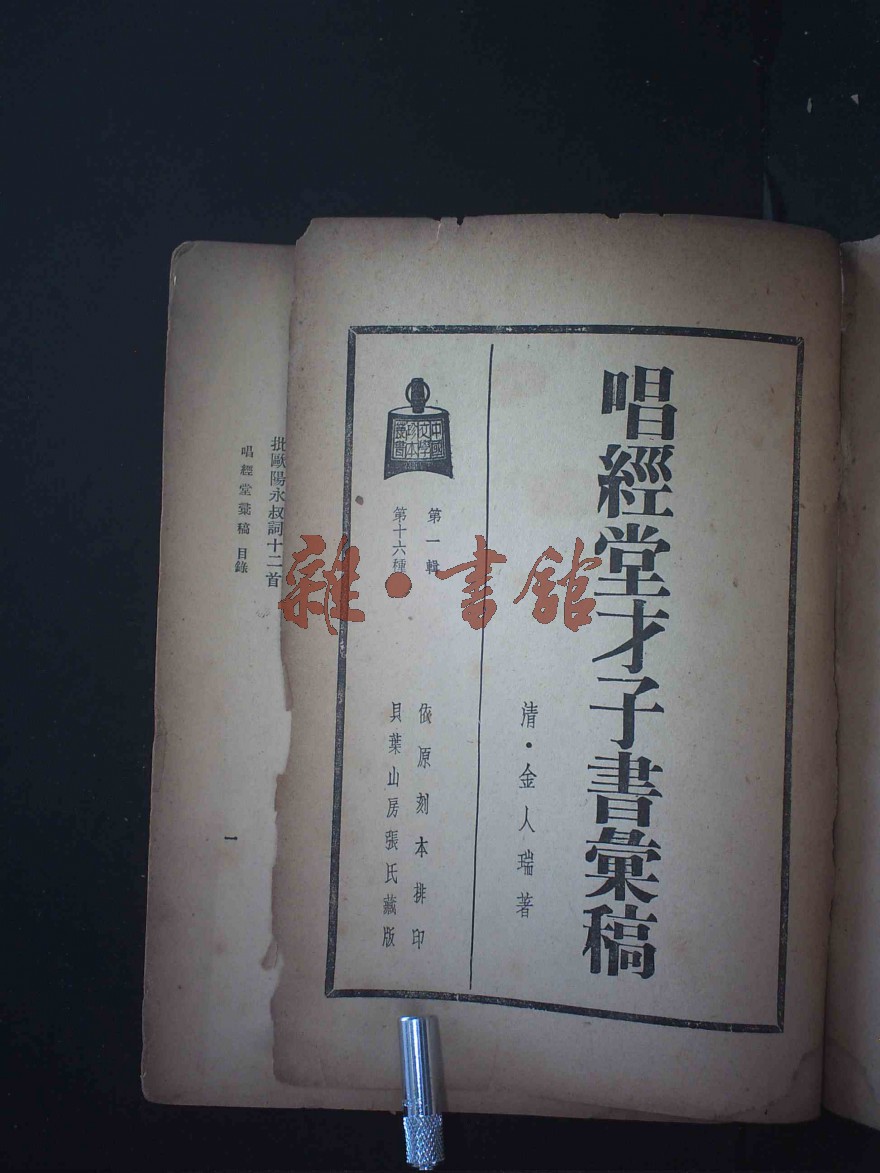 唱經堂才子書彙稿
清·金人瑞著
中國
文學
珍本
叢書
第一輯
第十六種
依原刻本排印
貝葉山房張氏藏版
雜·書館
批歐陽永叔詞十二首
唱經堂彙稿 目錄
一